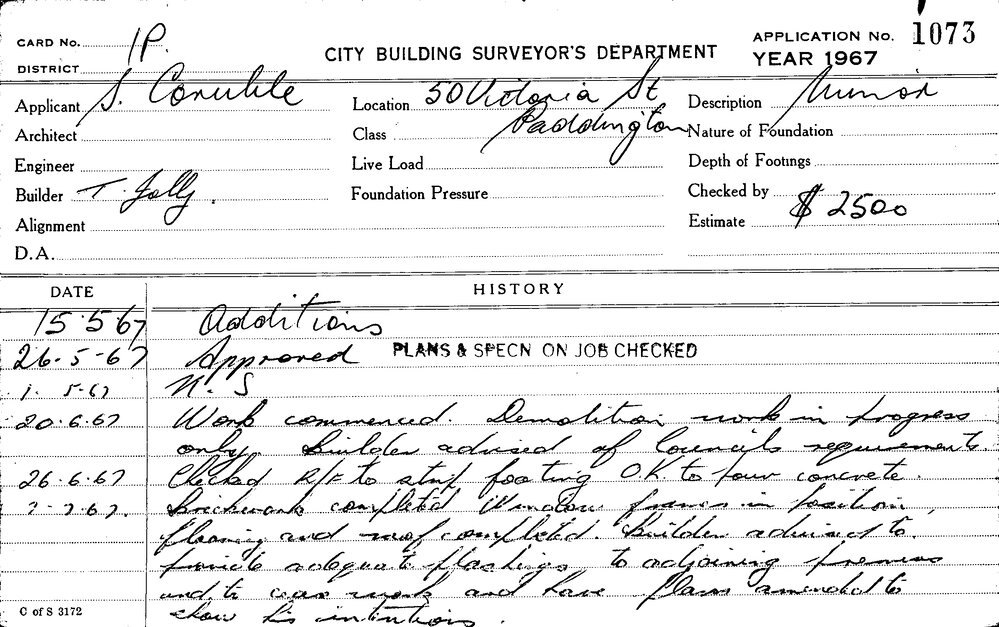 CARD No. 1P.
DISTRICT
CITY BUILDING SURVEYOR'S DEPARTMENT
APPLICATION No. 1073
YEAR 1967
Applicant S.
Architect
Engineer
Builder T. Jolly.
Alignment
D.A.
Location 50 Victoria St
Paddington
Class
Live Load
Foundation Pressure
Description Minor
Nature of Foundation
Depth of Footings
Checked by
Estimate $ 2500
DATE HISTORY
15.5.67 Additions
26-5-67 Approved PLANS & SPECN ON JOB CHECKED
1. 5.67 N. S
20.6.67 Work commenced. Demolition work in progress
only. Builder advised of Councils requirements.
26.6.67 Checked R/F to strip footing O.K. to pour concrete.
7-7.67. Brickwork completed Window frames in position,
flooring and roof completed. Builder advised to.
provide adequate flashings to adjoining premises
and to work and have plans amended to
show his intentions.
C of S 3172